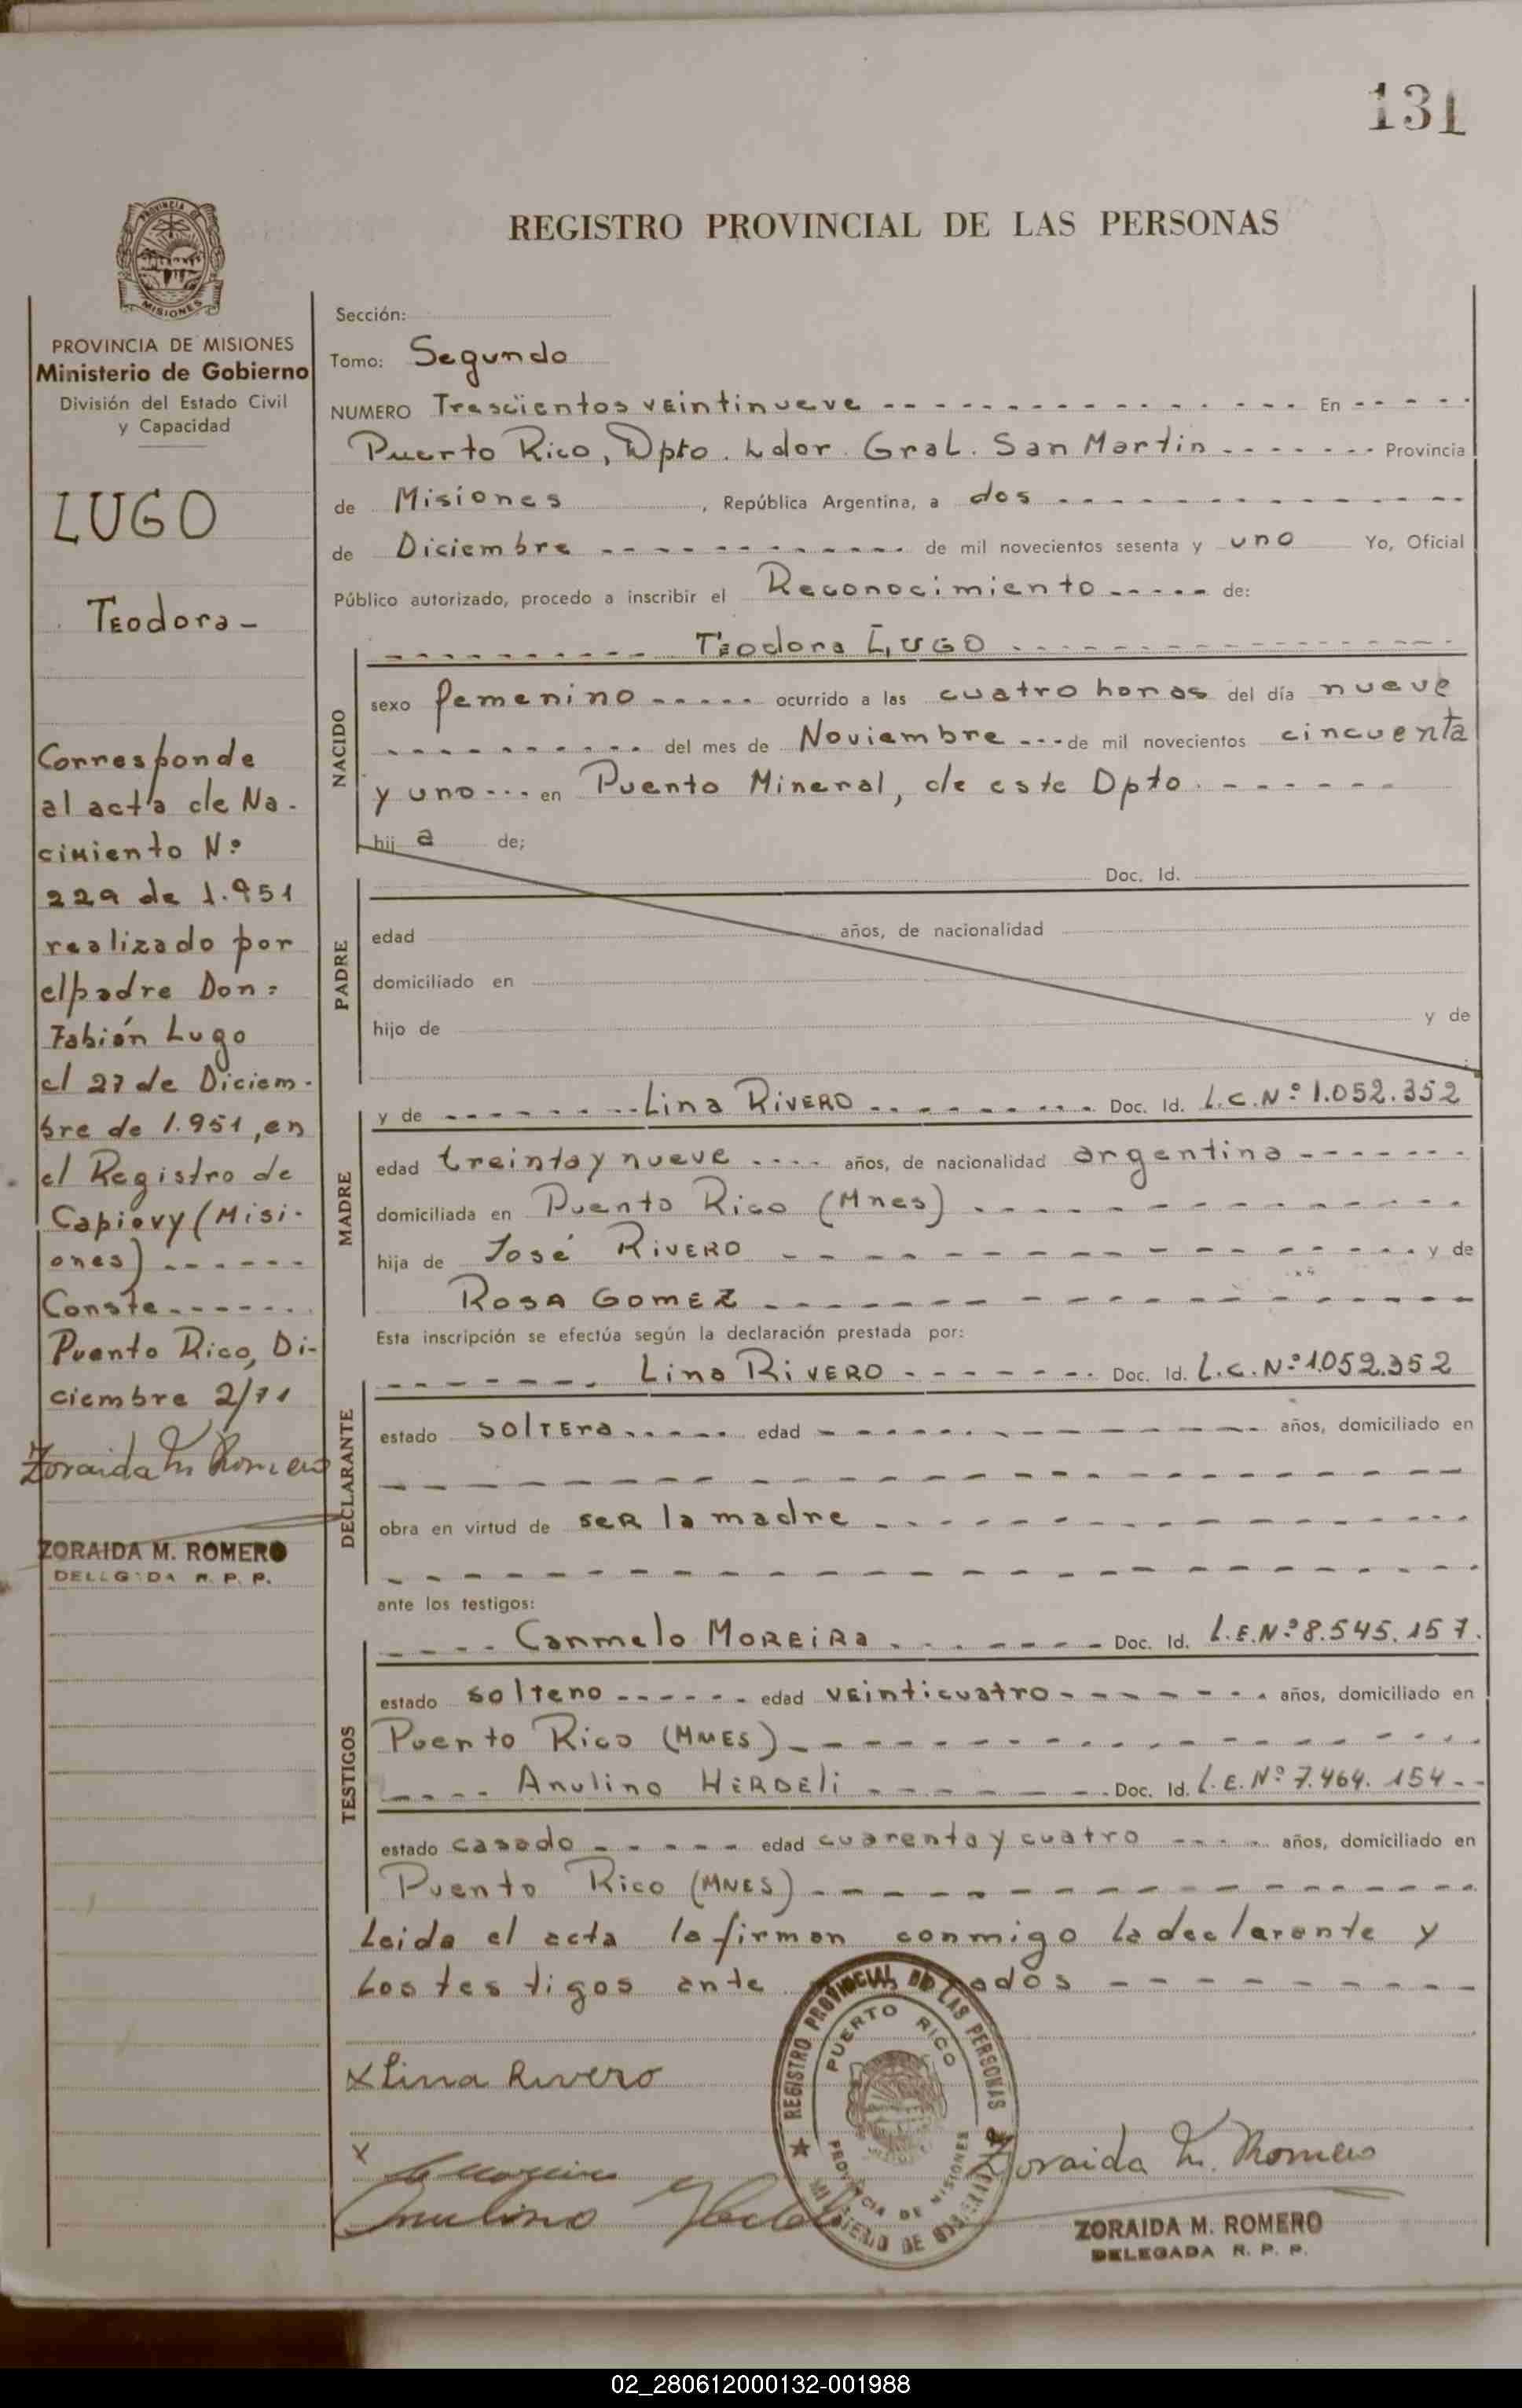 131
REGISTRO PROVINCIAL DE LAS PERSONAS
PROVINCIA DE MISIONES
MISIONES
PROVINCIA DE MISIONES
Ministerio de Gobierno
División del Estado Civil
y Capacidad
LUGO
Teodora -
Corresponde
al acta de Na-
cimiento Nº
229 de 1.951
realizado por
el padre Don =
Fabián Lugo
el 27 de Diciem-
bre de 1.951, en
el Registro de
Capiovy (Misi-
ones) ------
Conste ------
Puerto Rico, Di-
ciembre 2/71
Zoraida M. Romero
ZORAIDA M. ROMERO
DELEGADA R. P. P.
Sección:
Tomo: Segundo
NUMERO Trescientos veintinueve ---------------- En -----
Puerto Rico, Dpto. Ldor. Gral. San Martin ------- Provincia
de Misiones , República Argentina, a dos --------------
de Diciembre ------------- de mil novecientos sesenta y uno Yo, Oficial
Público autorizado, procedo a inscribir el Reconocimiento ----- de:
---------- Teodora LUGO ----------------
NACIDO
sexo femenino ----- ocurrido a las cuatro horas del día nueve
----------- del mes de Noviembre --- de mil novecientos cincuenta
y uno --- en Puerto Mineral, de este Dpto. ------
hij a de;
PADRE
Doc. Id.
edad años, de nacionalidad
domiciliado en
hijo de y de
MADRE
y de ------- Lina RIVERO --------- Doc. Id. L.C. Nº 1.052.352
edad treinta y nueve ---- años, de nacionalidad argentina -------
domiciliada en Puerto Rico (Mnes) -------------
hija de José RIVERO --------------- y de
ROSA GOMEZ -----------------
Esta inscripción se efectúa según la declaración prestada por:
DECLARANTE
------- Lina RIVERO ------- Doc. Id. L.C. Nº 1.052.352
estado soltera ----- edad ------------ años, domiciliado en
--------------------------
obra en virtud de ser la madre ---------------
--------------------------
ante los testigos:
TESTIGOS
---- Carmelo MOREIRA ------- Doc. Id. L.E. Nº 8.545.157.
estado soltero ------ edad veinticuatro -------- años, domiciliado en
Puerto Rico (MNES) -----------------
---- Anulino HERDELi ------ Doc. Id. L.E. Nº 7.464.154 --
estado casado ----- edad cuarenta y cuatro ----- años, domiciliado en
Puerto Rico (MNES) -----------------
Leida el acta la firman conmigo la declarante y
los testigos ante ados ---------
REGISTRO PROVINCIAL DE LAS PERSONAS
PUERTO RICO
PROVINCIA DE MISIONES
MINISTERIO DE GOBIERNO
x Lina Rivero
x
Anulino
Zoraida M. Romero
ZORAIDA M. ROMERO
DELEGADA R. P. P.
02_280612000132-001988